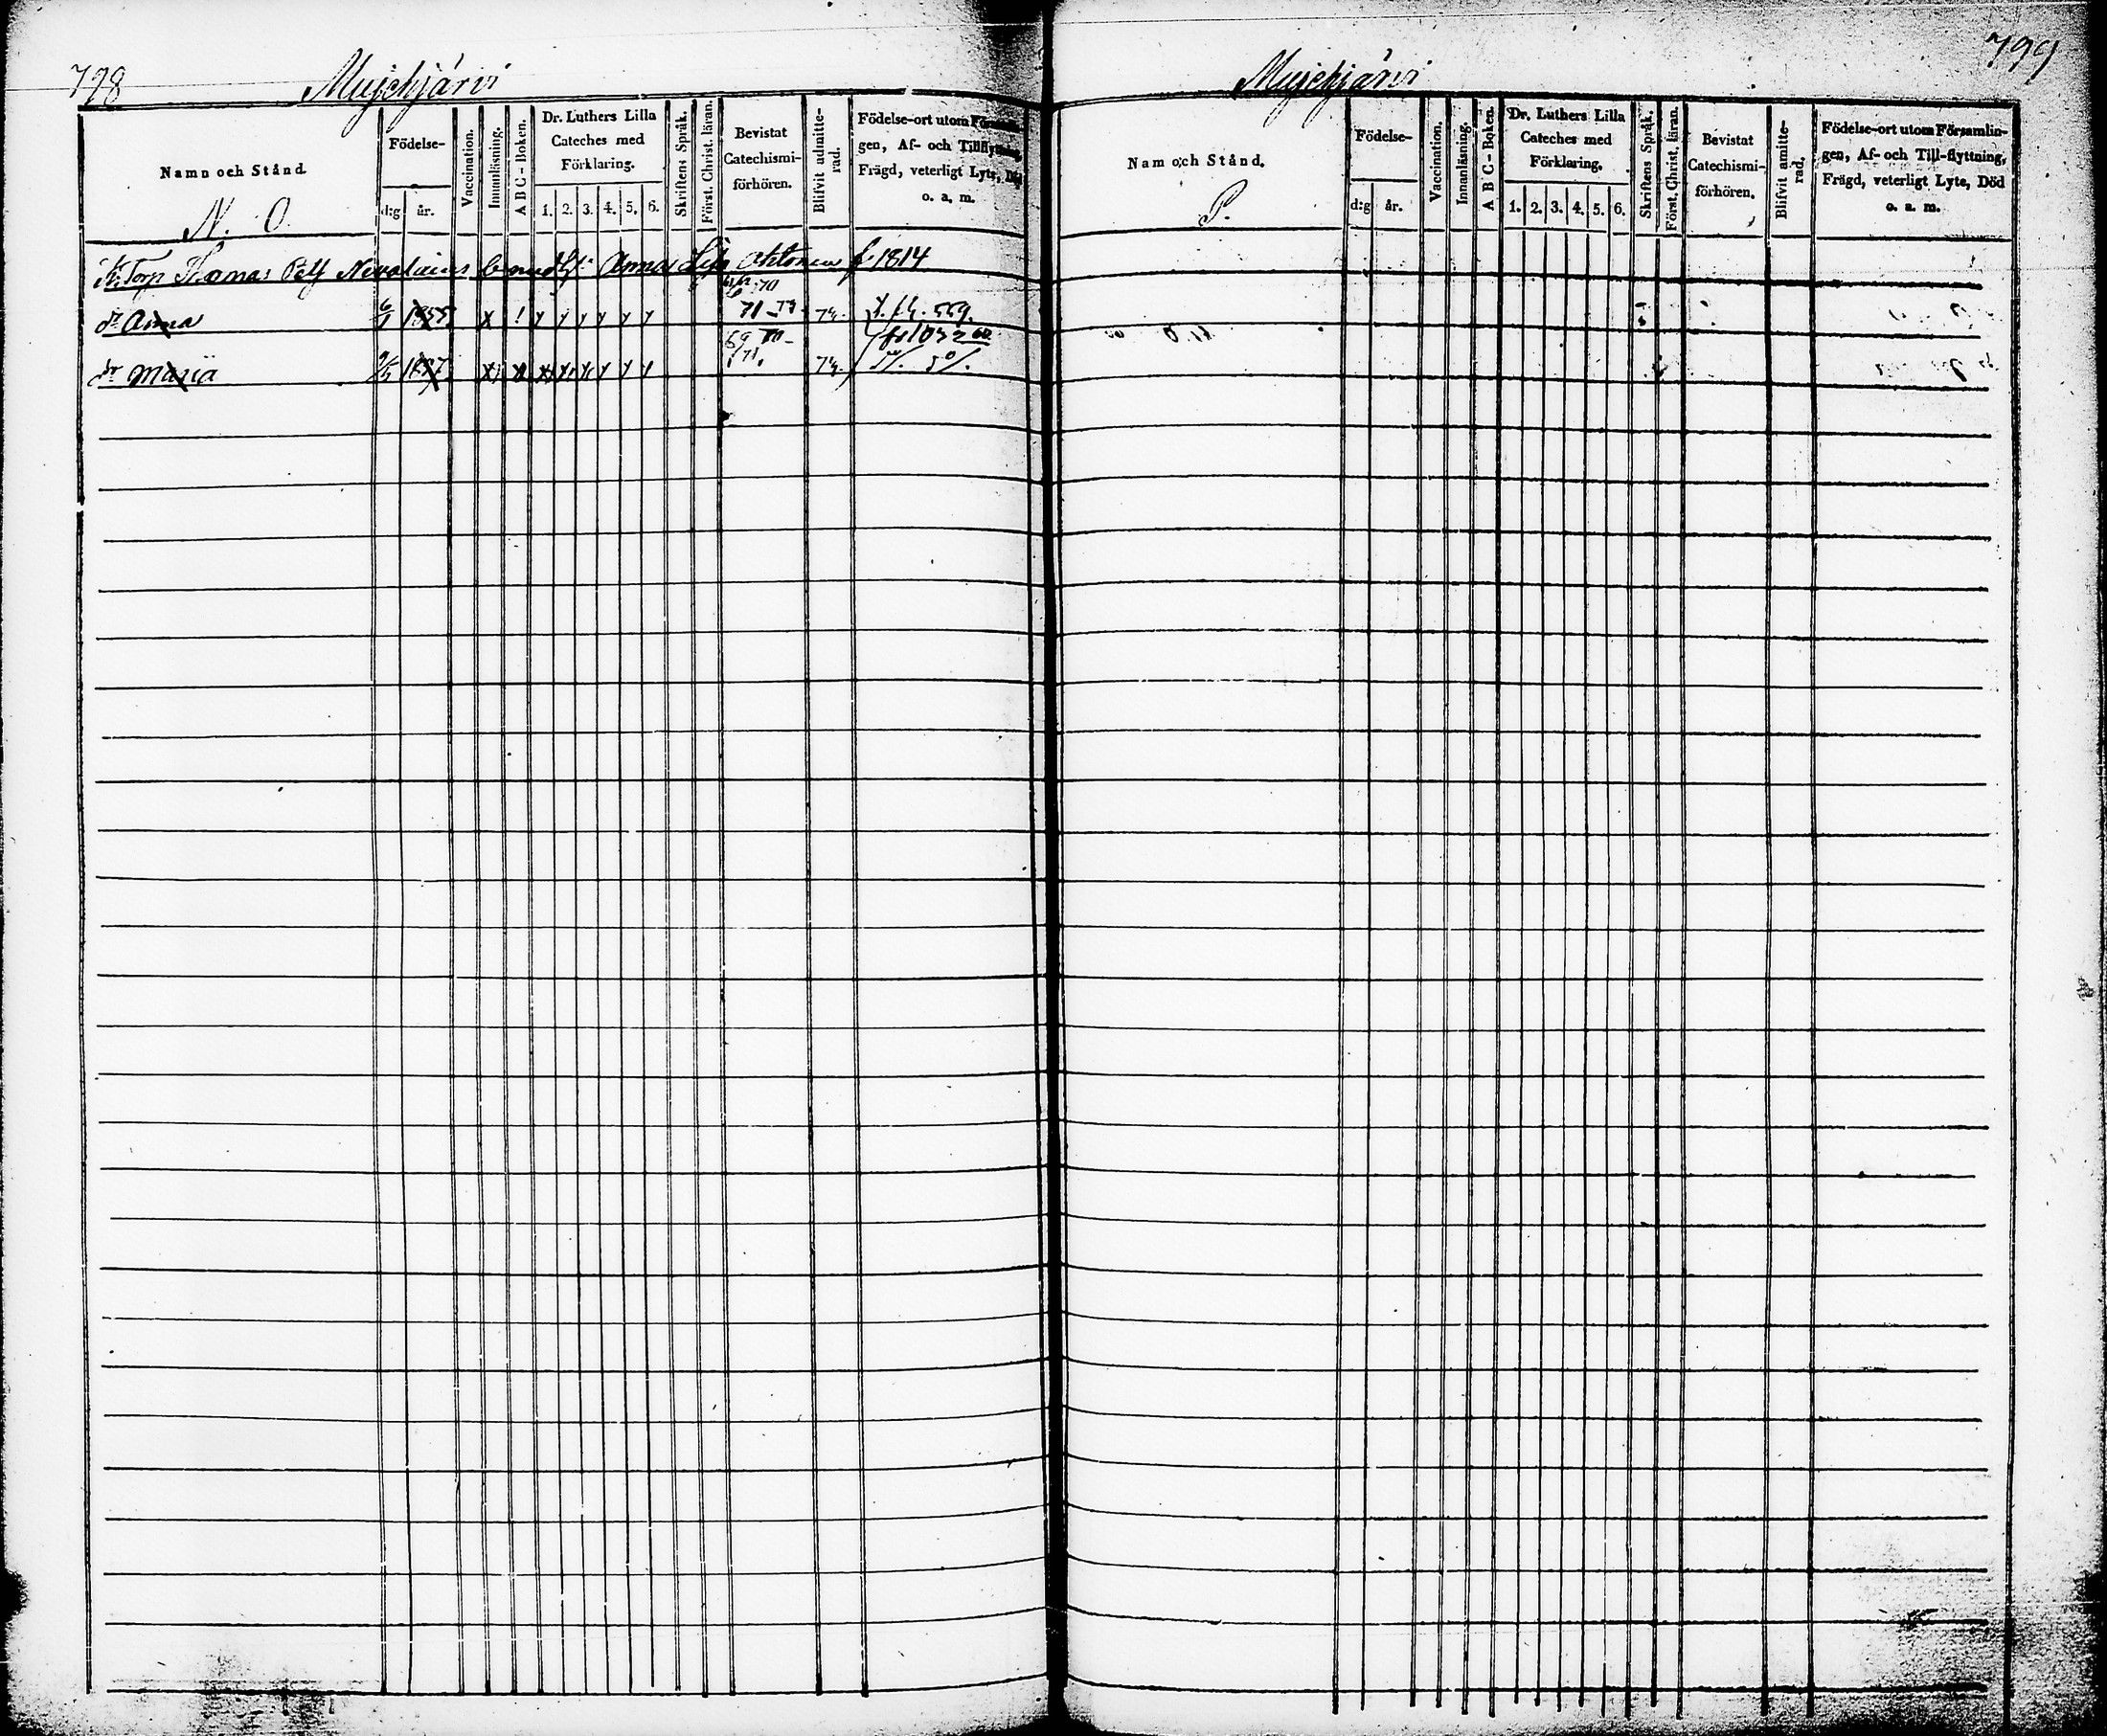 798
Mujehjärvi
Namn och Stånd
N. O.
Födelse-
d:g
år.
Vaccination.
Innanläsning.
A B C - Boken.
Dr. Luthers Lilla
Cateches med
Förklaring.
1. 2. 3. 4. 5. 6.
Skriftens Språk.
Först. Christ. läran.
Bevistat
Catechismi-
förhören.
Blifvit admitte-
rad.
Födelse-ort utom Församlin-
gen, Af- och Tillflyttning,
Frägd, veterligt Lyte, Död
o. a. m.
Torp Thomas Nevalainens Anna Ahtonen f 1814
70
dr Anna 6/1 1855 x ! y y y y y y 71 74. fl. 559.
69 70 - 1032
dr Maria 1857 71. 74.
799
Mujehjärvi
Nam och Stånd.
P.
Födelse-
d:g
år.
Vaccination.
Innanläsning.
A B C - Boken.
Dr. Luthers Lilla
Cateches med
Förklaring.
1. 2. 3. 4. 5. 6.
Skriftens Språk.
Först. Christ. läran.
Bevistat
Catechismi-
förhören.
Blifvit amitte-
rad.
Födelse-ort utom Församlin-
gen, Af- och Till-flyttning,
Frägd, veterligt Lyte, Död
o. a. m.